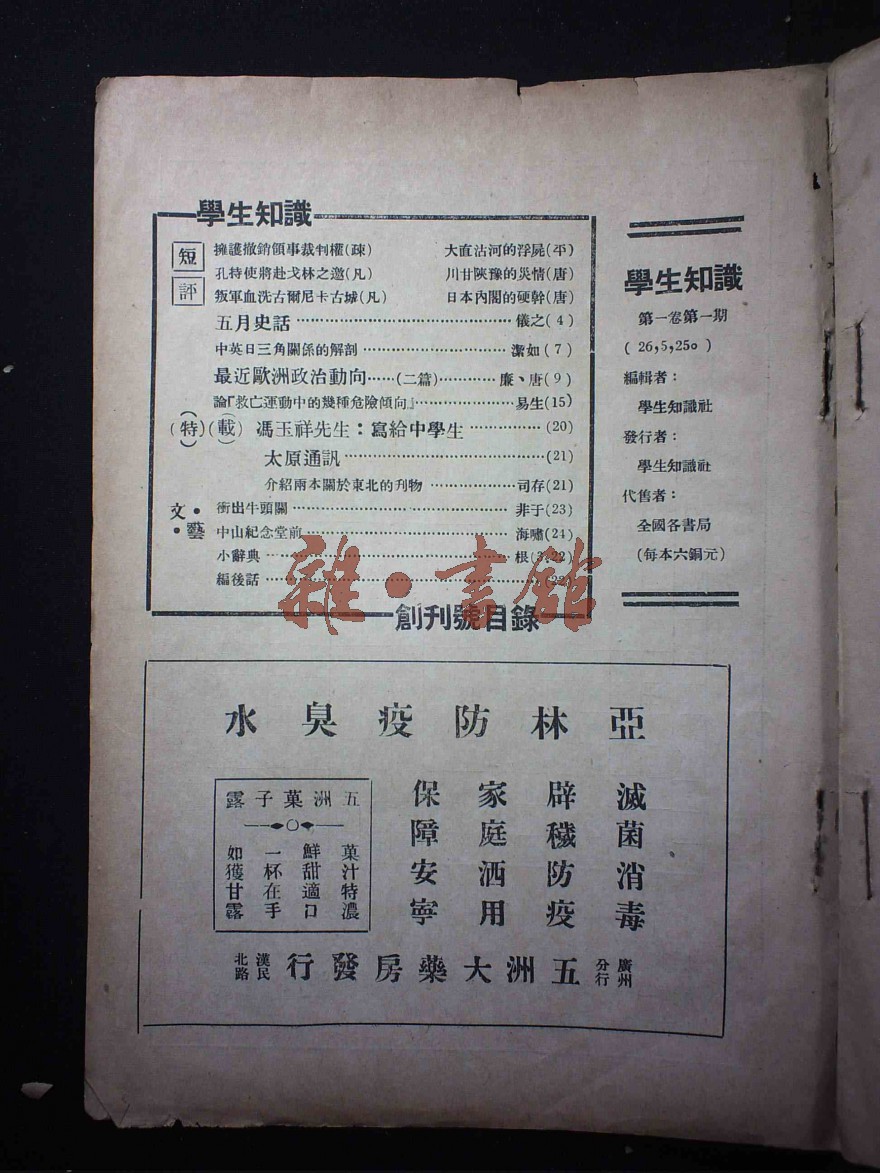 學生知識
短評
擁護撤銷領事裁判權(疎)
大直沽河的浮屍(平)
孔特使將赴戈林之邀(凡)
川甘陝豫的災情(唐)
叛軍血洗古爾尼卡古城(凡)
日本內閣的硬幹(唐)
五月史話……儀之(4)
中英日三角關係的解剖……潔如(7)
最近歐洲政治動向……(二篇)……廉、唐(9)
論『救亡運動中的幾種危險傾向』……易生(15)
(特)(載)馮玉祥先生：寫給中學生……(20)
太原通訊……(21)
介紹兩本關於東北的刊物……司存(21)
文·藝
衝出牛頭關……非于(23)
中山紀念堂前……海嘯(24)
小辭典……根(3,22)
編後話……(22)
創刊號目錄
學生知識
第一卷第一期
(26,5,25。)
編輯者：
學生知識社
發行者：
學生知識社
代售者：
全國各書局
(每本六銅元)
雜·書館
亞林防疫臭水
滅菌消毒
辟穢防疫
家庭洒用
保障安寧
五洲菓子露
菓汁特濃
鮮甜適口
一杯在手
如獲甘露
廣州分行
五洲大藥房發行
漢民北路